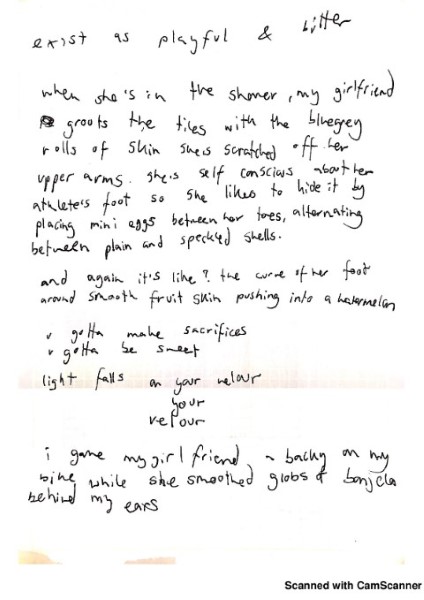 exist as playful & bitter
when she's in the shower, my girlfriend
groots the tiles with the bluegrey
rolls of skin she's scratched off her
upper arms. she's self conscious about her
athlete's foot so she likes to hide it by
placing mini eggs between her toes, alternating
between plain and speckled shells.
and again it's like? the curve of her foot
around smooth fruit skin pushing into a watermelon
u gotta make sacrifices
u gotta be sweet
light falls on your velour
your
velour
i gave my girlfriend a backy on my
bike while she smoothed globs of bonjela
behind my ears
Scanned with CamScanner